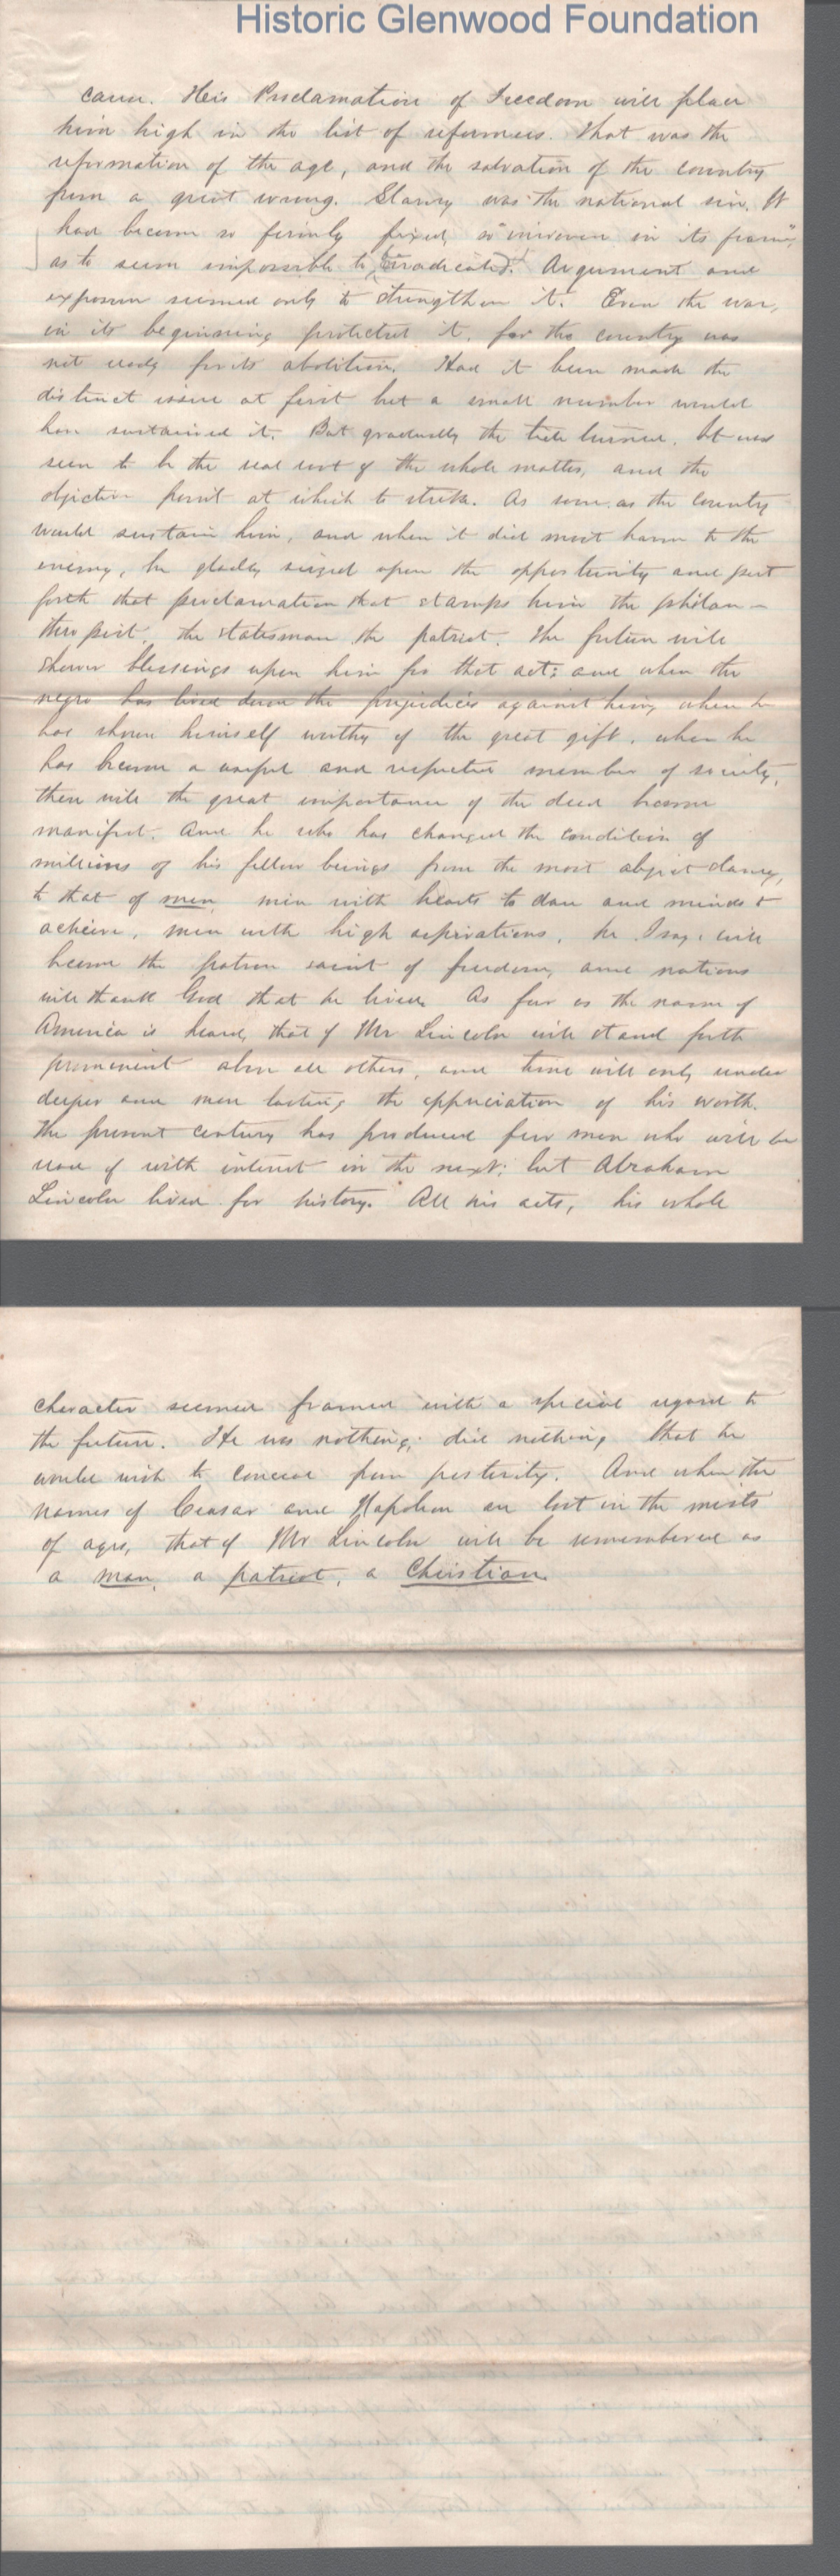 Historic Glenwood Foundation
cause. His Proclamation of Freedom will place
him high in the list of reformers. That was the
reformation of the age, and the salvation of the country
from a great wrong. Slavery was the national sin. It
had become so firmly fixed, so "inwoven in its frame",
as to seem impossible to eradicated. Argument and
exposure seemed only to strengthen it. Even the war,
in its beginning protected it, for the country was
not ready for its abolition. Had it been made the
distinct issue at first but a small number would
have sustained it. But gradually the tide turned. It was
seen to be the real root of the whole matter, and the
objective point at which to strike. As soon as the country
would sustain him, and when it did most harm to the
enemy, he gladly seized upon the opportunity and put
forth that proclamation that stamps him the philan-
thropist, the statesman, the patriot. The future will
shower blessings upon him for that act: and when the
negro has lived down the prejudices against him, when he
has shown himself worthy of the great gift, when he
has become a useful and respected member of society,
then will the great importance of the deed become
manifest. And he who has changed the condition of
millions of his fellow beings from the most abject slavery,
to that of men, men with hearts to dare and minds to
achieve, men with high aspirations, he I say, will
become the patron saint of freedom, and nations
will thank God that he lived. As far as the name of
America is heard, that of Mr Lincoln will stand forth
prominent above all others, and time will only render
deeper and more lasting the appreciation of his worth.
The present century has produced few men who will be
read of with interest in the next; but Abraham
Lincoln lived for history. All his acts, his whole
character seemed framed with a special regard to
the future. He was nothing, did nothing that he
would wish to conceal from posterity. And when the
names of Ceasar and Napoleon are lost in the mists
of ages, that of Mr Lincoln will be remembered as
a man, a patriot, a Christian.